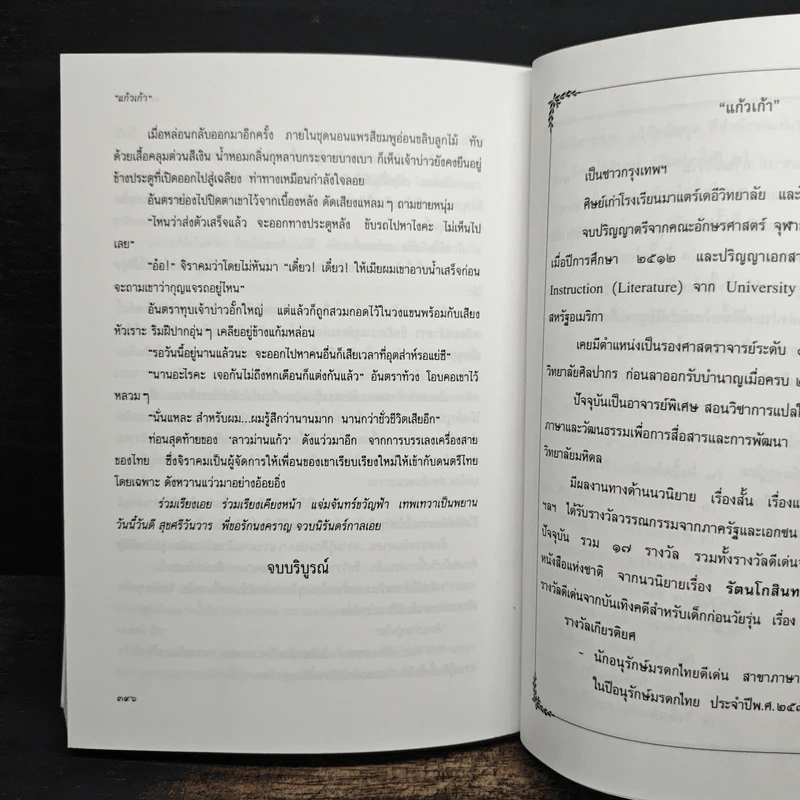 "แก้วเก้า"
เมื่อหล่อนกลับออกมาอีกครั้ง ภายในชุดนอนแพรสีชมพูอ่อนขลิบลูกไม้ ทับ
ด้วยเสื้อคลุมต่วนสีเงิน น้ำหอมกลิ่นกุหลาบกระจายบางเบา ก็เห็นเจ้าบ่าวยังคงยืนอยู่
ข้างประตูที่เปิดออกไปสู่เฉลียง ท่าทางเหมือนกำลังใจลอย
อันตราย่องไปปิดตาเขาไว้จากเบื้องหลัง ดัดเสียงแหลมๆ ถามชายหนุ่ม
"ไหนว่าส่งตัวเสร็จแล้ว จะออกทางประตูหลัง ขับรถไปหาไงคะ ไม่เห็นไป
เลย"
"อ๋อ!" จิราคมว่าโดยไม่หันมา "เดี๋ยว! เดี๋ยว! ให้เมียผมเขาอาบน้ำเสร็จก่อน
จะถามเขาว่ากุญแจรถอยู่ไหน"
อันตราทุบเจ้าบ่าวอั้กใหญ่ แต่แล้วก็ถูกสวมกอดไว้ในวงแขนพร้อมกับเสียง
หัวเราะ ริมฝีปากอุ่นๆ เคลียอยู่ข้างแก้มหล่อน
"รอวันนี้อยู่นานแล้วนะ จะออกไปหาคนอื่นก็เสียเวลาที่อุตส่าห์รอแย่ซี"
"นานอะไรคะ เจอกันไม่ถึงหกเดือนก็แต่งกันแล้ว" อันตราท้วง โอบคอเขาไว้
หลวมๆ
"นั่นแหละ สำหรับผม...ผมรู้สึกว่านานมาก นานกว่าชั่วชีวิตเสียอีก"
ท่อนสุดท้ายของ 'ลาวม่านแก้ว' ดังแว่วมาอีก จากการบรรเลงเครื่องสาย
ของไทย ซึ่งจิราคมเป็นผู้จัดการให้เพื่อนของเขาเรียบเรียงใหม่ให้เข้ากับดนตรีไทย
โดยเฉพาะ ดังหวานแว่วมาอย่างอ้อยอิ่ง
ร่วมเรียงเอย ร่วมเรียงเคียงหน้า แจ่มจันทร์ขวัญฟ้า เทพเทวาเป็นพยาน
วันนี้วันดี สุขศรีวันวาร พี่ขอรักนงคราญ จวบนิรันดร์กาลเอย
จบบริบูรณ์
๓๙๖
"แก้วเก้า"
เป็นชาวกรุงเทพฯ
ศิษย์เก่าโรงเรียนมาแตร์เดอีวิทยาลัย และ
จบปริญญาตรีจากคณะอักษรศาสตร์
เมื่อปีการศึกษา ๒๕๑๒ และปริญญาเอกสา
Instruction (Literature) จาก University
สหรัฐอเมริกา
เคยมีตำแหน่งเป็นรองศาสตราจารย์ระดับ
วิทยาลัยศิลปากร ก่อนลาออกรับบำนาญเมื่อครบ
ปัจจุบันเป็นอาจารย์พิเศษ สอนวิชาการแปล
ภาษาและวัฒนธรรมเพื่อการสื่อสารและการพัฒนา
วิทยาลัยมหิดล
มีผลงานทางด้านนวนิยาย เรื่องสั้น
ฯลฯ ได้รับรางวัลวรรณกรรมจากภาครัฐและเอกชน
ปัจจุบัน รวม ๑๗ รางวัล รวมทั้งรางวัลดีเด่น
หนังสือแห่งชาติ จากนวนิยายเรื่อง รัตนโกสินท
รางวัลดีเด่นจากบันเทิงคดีสำหรับเด็กก่อนวัยรุ่น เรื่อง
รางวัลเกียรติยศ
- นักอนุรักษ์มรดกไทยดีเด่น สาขาภาษา
ในปีอนุรักษ์มรดกไทย ประจำปีพ.ศ.๒๕๓